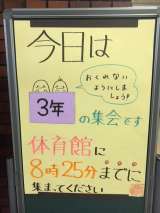 今日は
おくれない
ようにしま
しょう♪
3年
の集会です
体育館に
8時25分までに
集まってください